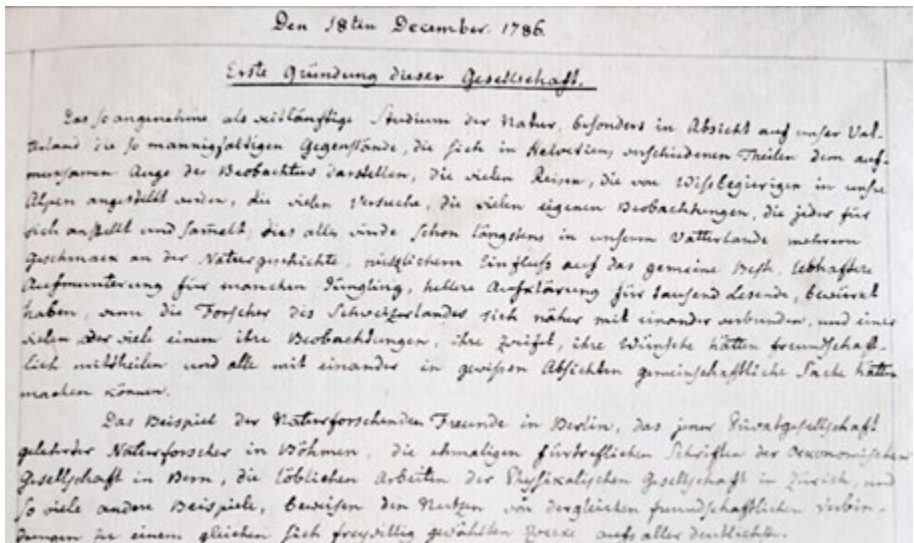 Den 18ten December. 1786.
Erste Gründung dieser Gesellschaft.
Das so angenehme als weitläuftige Studium der Natur, besonders in Absicht auf unser Vat-
terland die so mannigfaltigen Gegenstände, die sich in Helvetiens verschiedenen Theilen dem auf-
merksamen Auge des Beobachters darstellen, die vielen Reisen, die von Wißbegierigen in unsre
Alpen angestellt werden, die vielen Versuche, die vielen eigenen Beobachtungen, die jeder für
sich anstellt und samelt, dies alles würde schon längstens in unserm Vatterlande mehrern
Geschmack an der Naturgeschichte, nützlichern Einfluß auf das gemeine Beste, lebhaftere
Aufmunterung für manchen Jüngling, hellere Aufklärung für tausend Lesende, bewürkt
haben, wenn die Forscher des Schweizerlandes sich näher mit einander verbunden, und einer
vielen oder viele einem ihre Beobachtungen, ihre Zweifel, ihre Wünsche hätten freundschaft-
lich mittheilen und alle mit einander in gewissen Absichten gemeinschaftliche Sache hätten
machen können.
Das Beispiel der Naturforschenden Freunde in Berlin, das jener Privatgesellschaft
gelehrter Naturforscher in Böhmen, die ehmaligen fürtreflichen Schriften der Oekonomischen
Gesellschaft in Bern, die löblichen Arbeiten der Physikalischen Gesellschaft in Zürich, und
so viele andere Beispiele, beweisen den Nutzen von dergleichen freundschaftlichen Verbin-
dungen zu einem gleichen sich freywillig gewählten Zwecke aufs aller deutlichste.